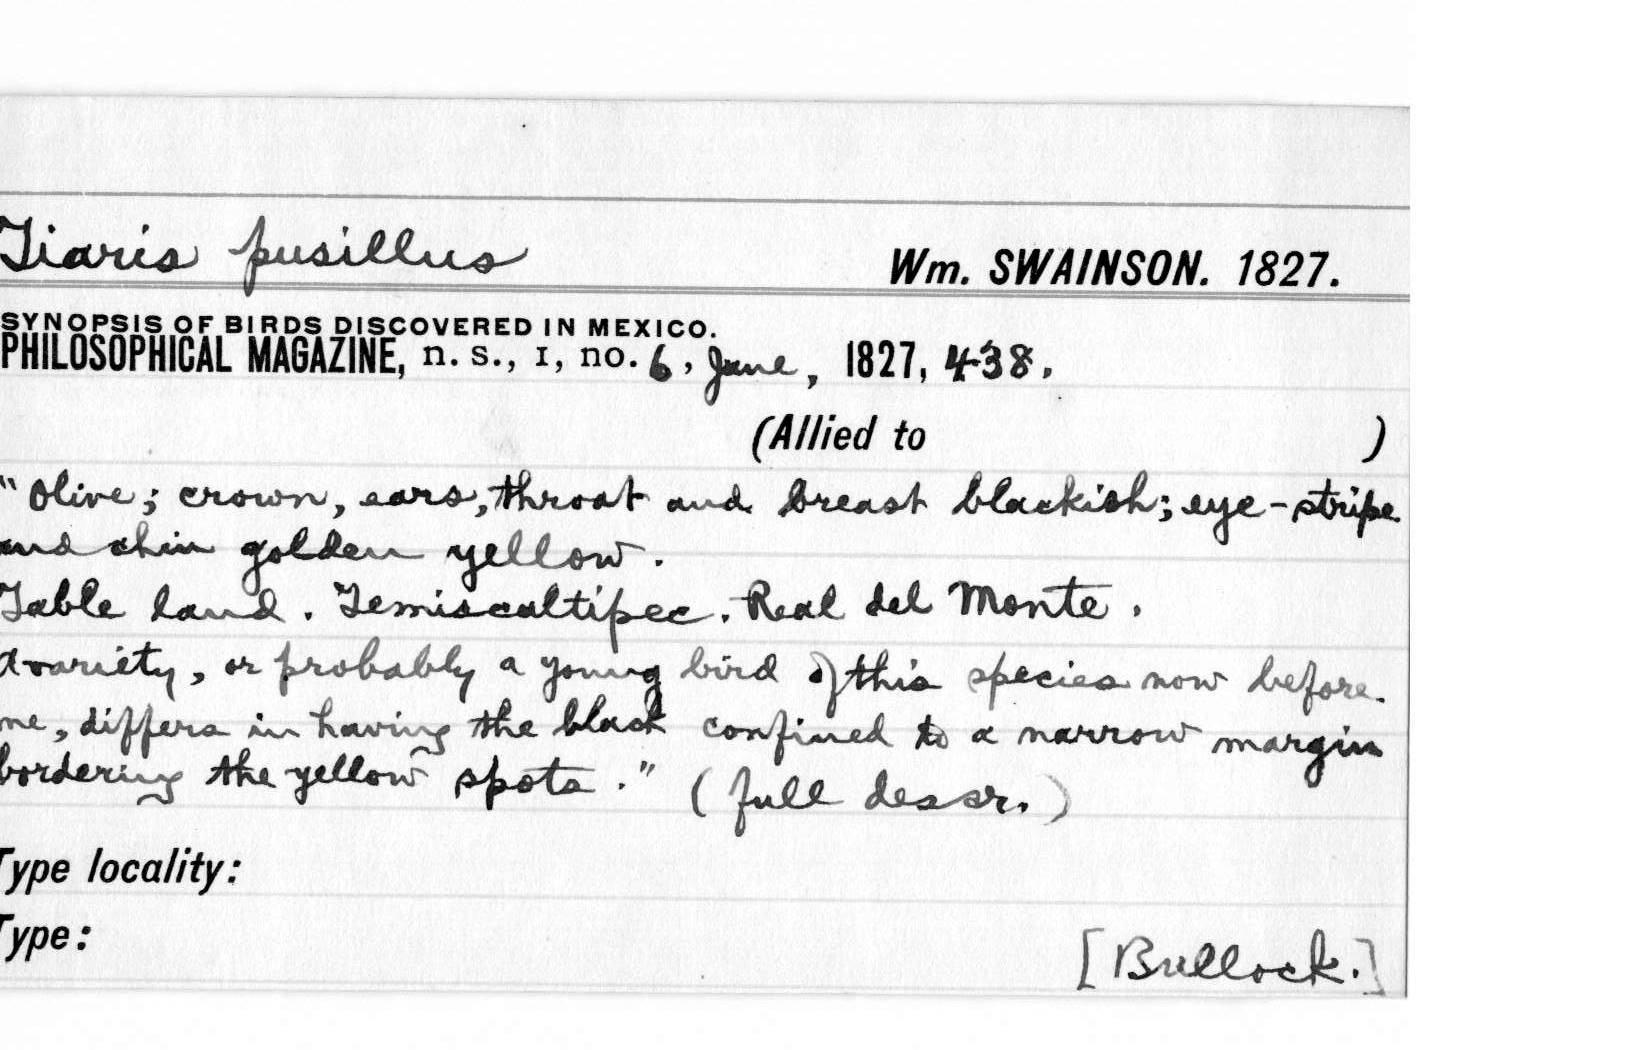 Tiaris pusillus
Wm. SWAINSON. 1827.
SYNOPSIS OF BIRDS DISCOVERED IN MEXICO.
PHILOSOPHICAL MAGAZINE, n. s., I, no. 6, June, 1827, 438.
(Allied to )
"Olive; crown, ears, throat and breast blackish; eye-stripe
and chin golden yellow.
Table land. Temiscaltipec. Real del Monte.
A variety, or probably a young bird of this species now before
me, differs in having the black confined to a narrow margin
bordering the yellow spots." (full descr.)
Type locality:
Type:
[Bullock.]